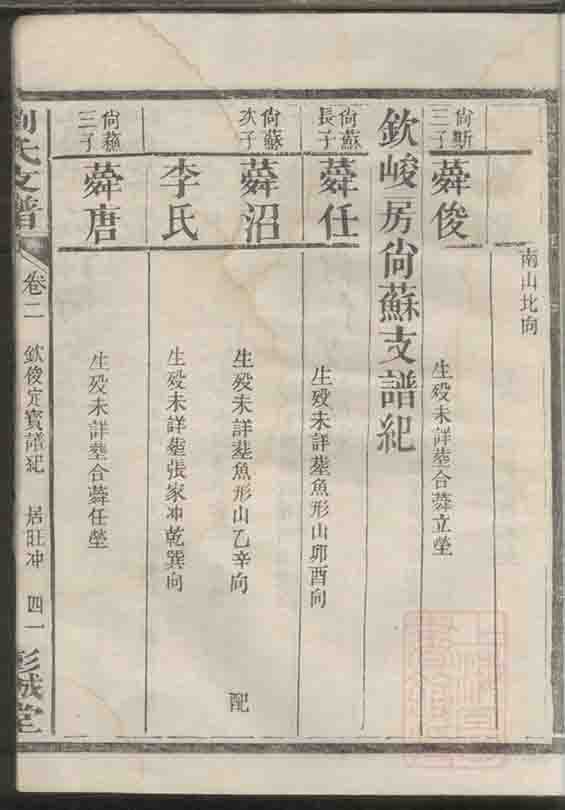 南山北向
尙斯
三子
蕣俊
生殁未詳塟合蕣立塋
欽峻房尙蘇支譜紀
尙蘇
長子
蕣任
生殁未詳塟魚形山卯酉向
尙蘇
次子
蕣沼
生殁未詳塟魚形山乙辛向
配
李氏
生殁未詳塟張家冲乾巽向
尙蘇
三子
蕣唐
生殁未詳塟合蕣任塋
劉氏支譜
卷二
欽俊定實譜紀
居旺冲
四一
彭城堂